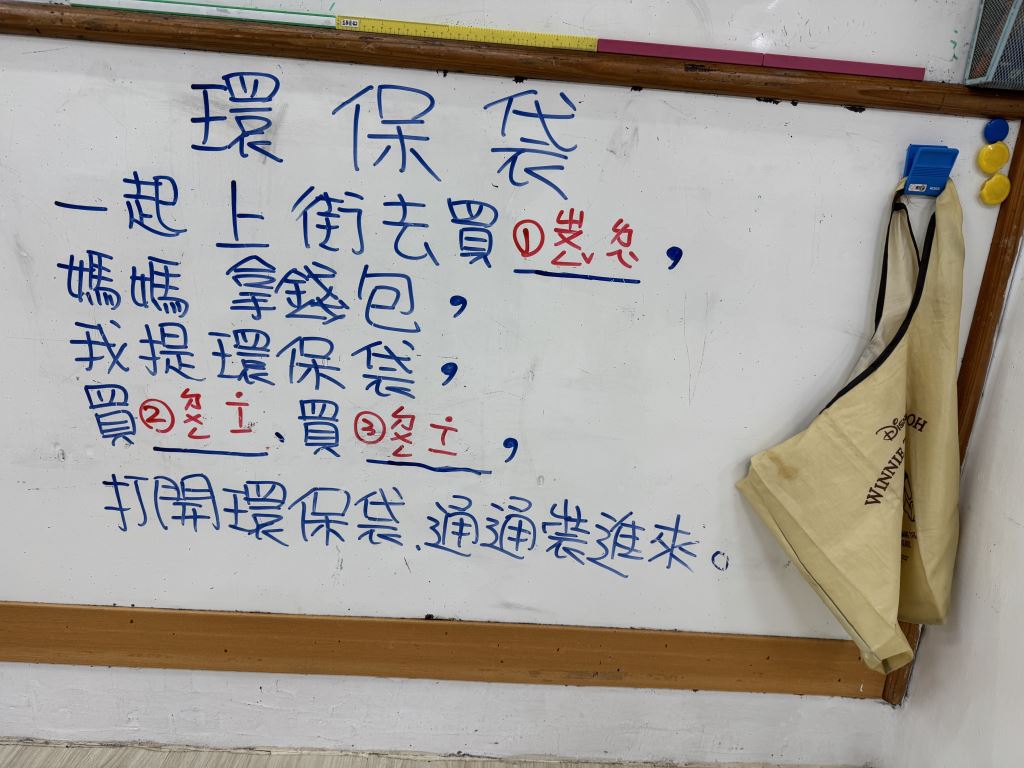 環保袋
一起上街去買①，
媽媽拿錢包，
我提環保袋，
買②ㄉㄨㄥ ˙ㄒㄧ、買③ㄉㄨㄥ ˙ㄒㄧ，
打開環保袋、通通裝進來。
Disney
WINNIE
POOH